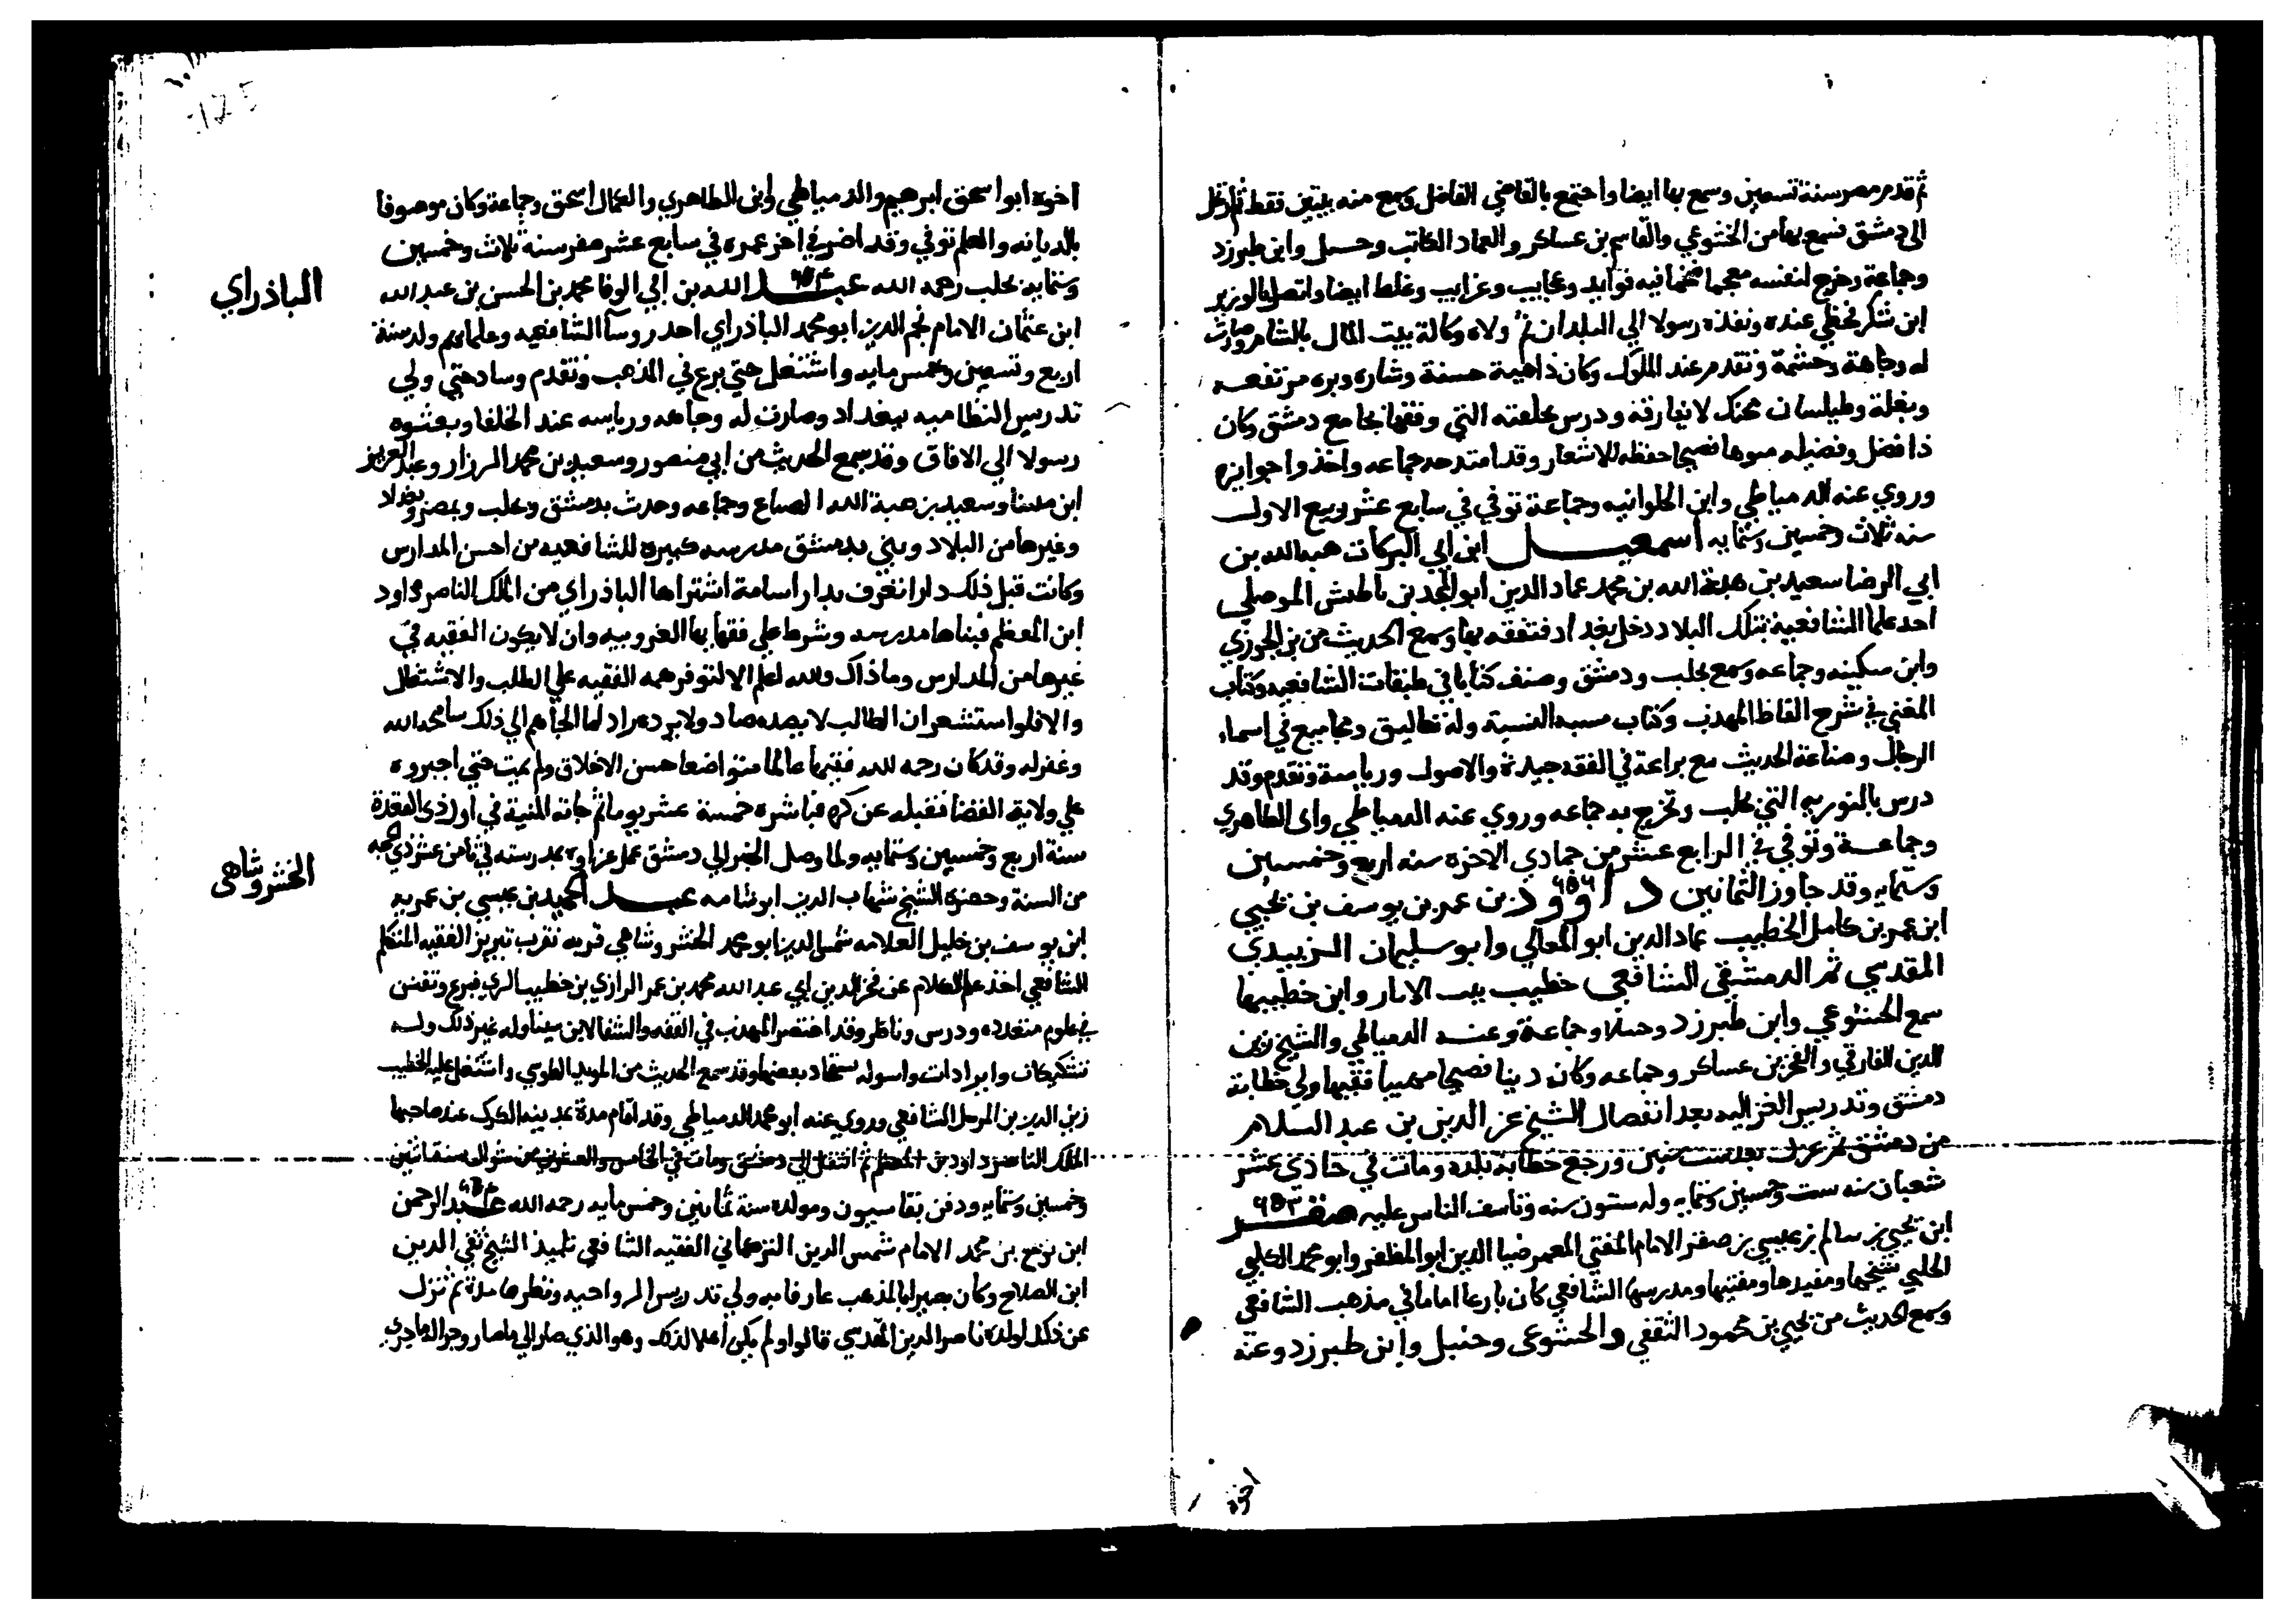 ثم قدم مصر سنة تسعين وسمع بها ايضا واجتمع بالقاضي الفاضل وسمع منه بيتين فقط ثم دخل
الى دمشق فسمع بها من الخشوعي والقاسم بن عساكر والعماد الكاتب وحنبل وابن طبرزد
وجماعة وخرج لنفسه معجما ضخما فيه فوايد وعجايب وغرايب وغلط ايضا واتصل بالوزير
ابن شكر فحظي عنده ونفذه رسولا الي البلدان ثم ولاه وكالة بيت المال بالشام وصارت
له وجاهة وحشمة وتقدم عند الملوك وكان ذا هيبة حسنة وشاره وبره مرتفعه
وبغلة وطيلسان محنك لا يفارقه ودرس بحلقته التي وقفها بجامع دمشق وكان
ذا فضل وفضيله مموها فصيحا حفظه للاشعار وقد امتدحه جماعه واخذوا جوايزه
وروي عنه الدمياطي وابن الحلوانيه وجماعة توفي في سابع عشر ربيع الاول
سنه ثلاث وخمسين وستمايه اسمعيل ابن ابي البركات هبة الله بن
ابي الرضا سعيد بن هبة الله بن محمد عماد الدين ابو المجد بن باطيش الموصلي
احد علما الشافعية بتلك البلاد دخل بغداد فتفقه بها وسمع الحديث من بن الجوزي
وابن سكينه وجماعه وسمع بحلب ودمشق وصنف كتابا في طبقات الشافعيه وكتاب
المغني في شرح الفاظ المهذب وكتاب مسبه النسبة وله تعاليق ومجاميع في اسماء
الرجال وصناعة الحديث مع براعة في الفقه جيدة والاصول ورياسة وتقدم وقد
درس بالنوريه التي بحلب وتخرج به جماعه وروي عنه الدمياطي وابن الظاهري
وجماعة وتوفي في الرابع عشر من جمادي الاخره سنه اربع وخمسين
وستمايه وقد جاوز الثمانين داوود ٦٥٦ بن عمر بن يوسف بن يحيي
ابن عمر بن كامل الخطيب عماد الدين ابو المعالي وابو سليمان الزبيدي
المقدسي ثم الدمشقي الشافعي خطيب بيت الابار وابن خطيبها
سمع الخشوعي وابن طبرزد وحنبلا وجماعة وعنه الدمياطي والشيخ زين
الدين الفارقي والفخر بن عساكر وجماعه وكان دينا فصيحا مهيبا فقيها ولي خطابة
دمشق وتدريس الغزاليه بعد انفصال الشيخ عز الدين بن عبد السلام
من دمشق ثم عزل بعد ست سنين ورجع خطابة بلده ومات في حادي عشر
شعبان سنه ست وخمسين وستمايه وله ستون سنه وتاسف الناس عليه صقر ٦٥٣
ابن يحيي بن سالم بن عيسي بن صقر الامام المفتي المعمر ضيا الدين ابو المظفر وابو محمد الكلبي
الحلبي شيخها ومفيدها ومفتيها ومدرسها الشافعي كان بارعا اماما في مذهب الشافعي
وسمع الحديث من يحيي بن محمود الثقفي والخشوعي وحنبل وابن طبرزد وعنه
اخوه ابو اسحق ابرهيم والدمياطي وابن الظاهري والكمال اسحق وجماعة وكان موصوفا
بالديانه والعلم توفي وقد اضر في اخر عمره في سابع عشر صفر سنة ثلاث وخمسين
وستمايه بحلب رحمه الله عبد الله بن ابي الوفا محمد بن الحسن بن عبد الله
الباذراي
ابن عثمان الامام نجم الدين ابو محمد الباذراي احد روسآ الشافعيه وعلمايهم ولد سنة
اربع وتسعين وخمس مايه واشتغل حتي برع في المذهب وتقدم وساد حتي ولي
تدريس النظاميه ببغداد وصارت له وجاهه ورياسه عند الخلفا وبعثوه
رسولا الي الافاق وقد سمع الحديث من ابي منصور وسعيد بن محمد الرزاز وعبد العزيز
ابن منينا وسعيد بن هبة الله الصباغ وجماعه وحدث بدمشق وحلب وبمصر وبغداد
وغيرها من البلاد وبني بدمشق مدرسه كبيره للشافعيه من احسن المدارس
وكانت قبل ذلك دارا تعرف بدار اسامة اشتراها الباذراي من الملك الناصر داود
ابن المعظم فبناها مدرسه وشرط علي فقهايها العزوبيه وان لا يكون الفقيه في
غيرها من المدارس وما ذاك والله اعلم الا لتوفر همه الفقيه علي الطلب والاشتغال
والا فلو استشعر ان الطالب لا يصده صاد ولا يرده راد لما الجاهم الي ذلك سامحه الله
وغفر له وقد كان رحمه الله فقيها عالما متواضعا حسن الاخلاق ولم يمت حتي اجبروه
علي ولاية القضا فقبله عن كره فباشره خمسة عشر يوما ثم جاته المنية في اول ذي القعدة
سنة اربع وخمسين وستمايه ولما وصل الخبر الي دمشق عمل عزاوه بمدرسته في ثامن عشر ذي الحجه
الخشروشاهي
من السنة وحضره الشيخ شهاب الدين ابو شامه عبد الحميد بن عيسي بن عمريه
ابن يوسف بن خليل العلامه شمس الدين ابو محمد الخشروشاهي قريه بقرب تبريز الفقيه المتكلم
الشافعي اخذ علم الكلام عن فخر الدين ابي عبد الله محمد بن عمر الرازي بن خطيب الري فبرع وتفنن
في علوم متعدده ودرس وناظر وقد اختصر المهذب في الفقه والشفا لابن سينا وله غير ذلك وله
تشكيكات وايرادات واسوله بعضها وقد سمع الحديث من المويد الطوسي واشتغل عليه الخطيب
زين الدين بن المرحل الشافعي وروي عنه ابو محمد الدمياطي وقد اقام مدة بمدينه الكرك عند صاحبها
الملك الناصر داود بن المعظم ثم انتقل الي دمشق ومات في الخامس والعشرين من شوال سنة اثنين
وخمسين وستمايه ودفن بقاسيون ومولده سنة ثمانين وخمس مايه رحمه الله عبد الرحمن
ابن نوح بن محمد الامام شمس الدين التركماني الفقيه الشافعي تلميذ الشيخ تقي الدين
ابن الصلاح وكان بصيرا بالمذهب عارفا به ولي تدريس الرواحيه ونظرها مدة ثم نزل
عن ذلك لولده ناصر الدين المقدسي قالوا ولم يكن اهلا لذلك وهو الذي صار الي ما صار وجرا له ما جري